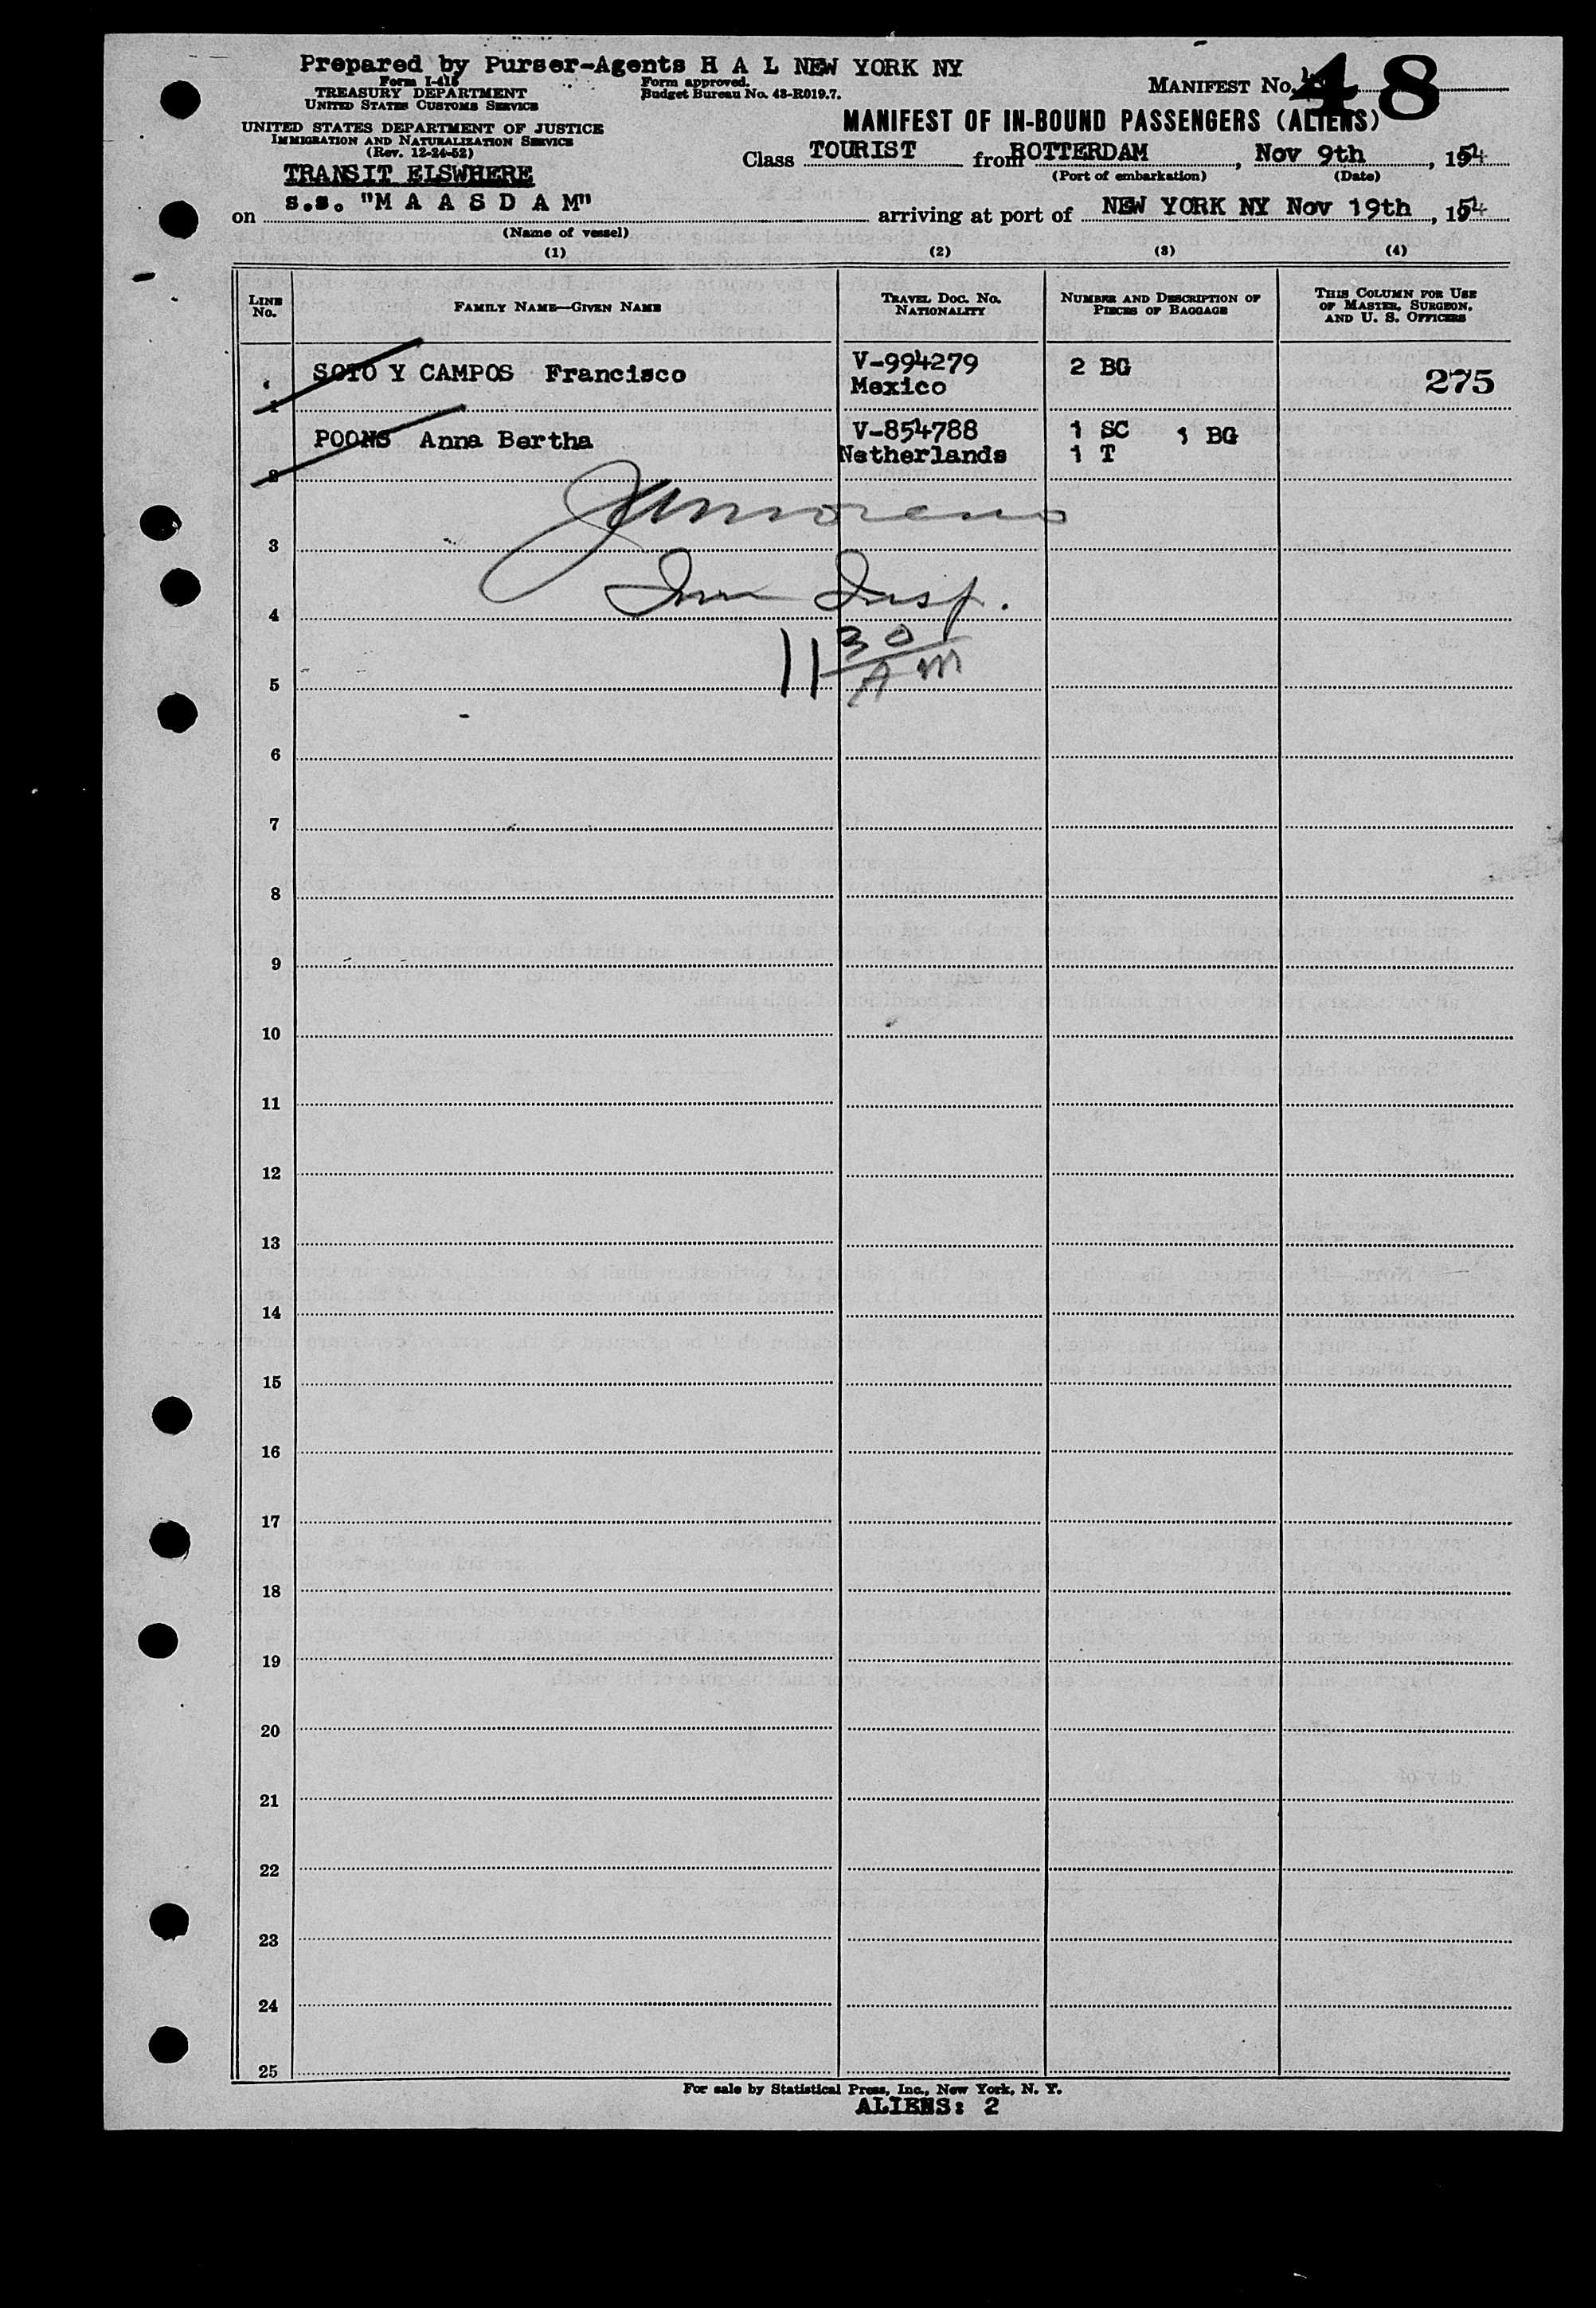 Prepared by Purser-Agents H A L NEW YORK NY
Form I-415
TREASURY DEPARTMENT
UNITED STATES CUSTOMS SERVICE
Form approved.
Budget Bureau No. 43-R019.7.
MANIFEST No. 48
UNITED STATES DEPARTMENT OF JUSTICE
IMMIGRATION AND NATURALIZATION SERVICE
(Rev. 12-24-52)
MANIFEST OF IN-BOUND PASSENGERS (ALIENS)
Class TOURIST from ROTTERDAM, Nov 9th, 1954
(Port of embarkation) (Date)
TRANSIT ELSWHERE
on s.s. "M A A S D A M" arriving at port of NEW YORK NY Nov 19th, 1954
(Name of vessel)
(1) (2) (3) (4)
LINE No.
FAMILY NAME—GIVEN NAME
TRAVEL DOC. NO. NATIONALITY
NUMBER AND DESCRIPTION OF PIECES OF BAGGAGE
THIS COLUMN FOR USE OF MASTER, SURGEON, AND U. S. OFFICERS
1 SOTO Y CAMPOS Francisco V-994279 2 BG 275
Mexico
2 POONS Anna Bertha V-854788 1 SC 1 BG
Netherlands 1 T
3
Imm Insp.
4
11 30 AM
5
6
7
8
9
10
11
12
13
14
15
16
17
18
19
20
21
22
23
24
25
For sale by Statistical Press, Inc., New York, N. Y.
ALIENS: 2